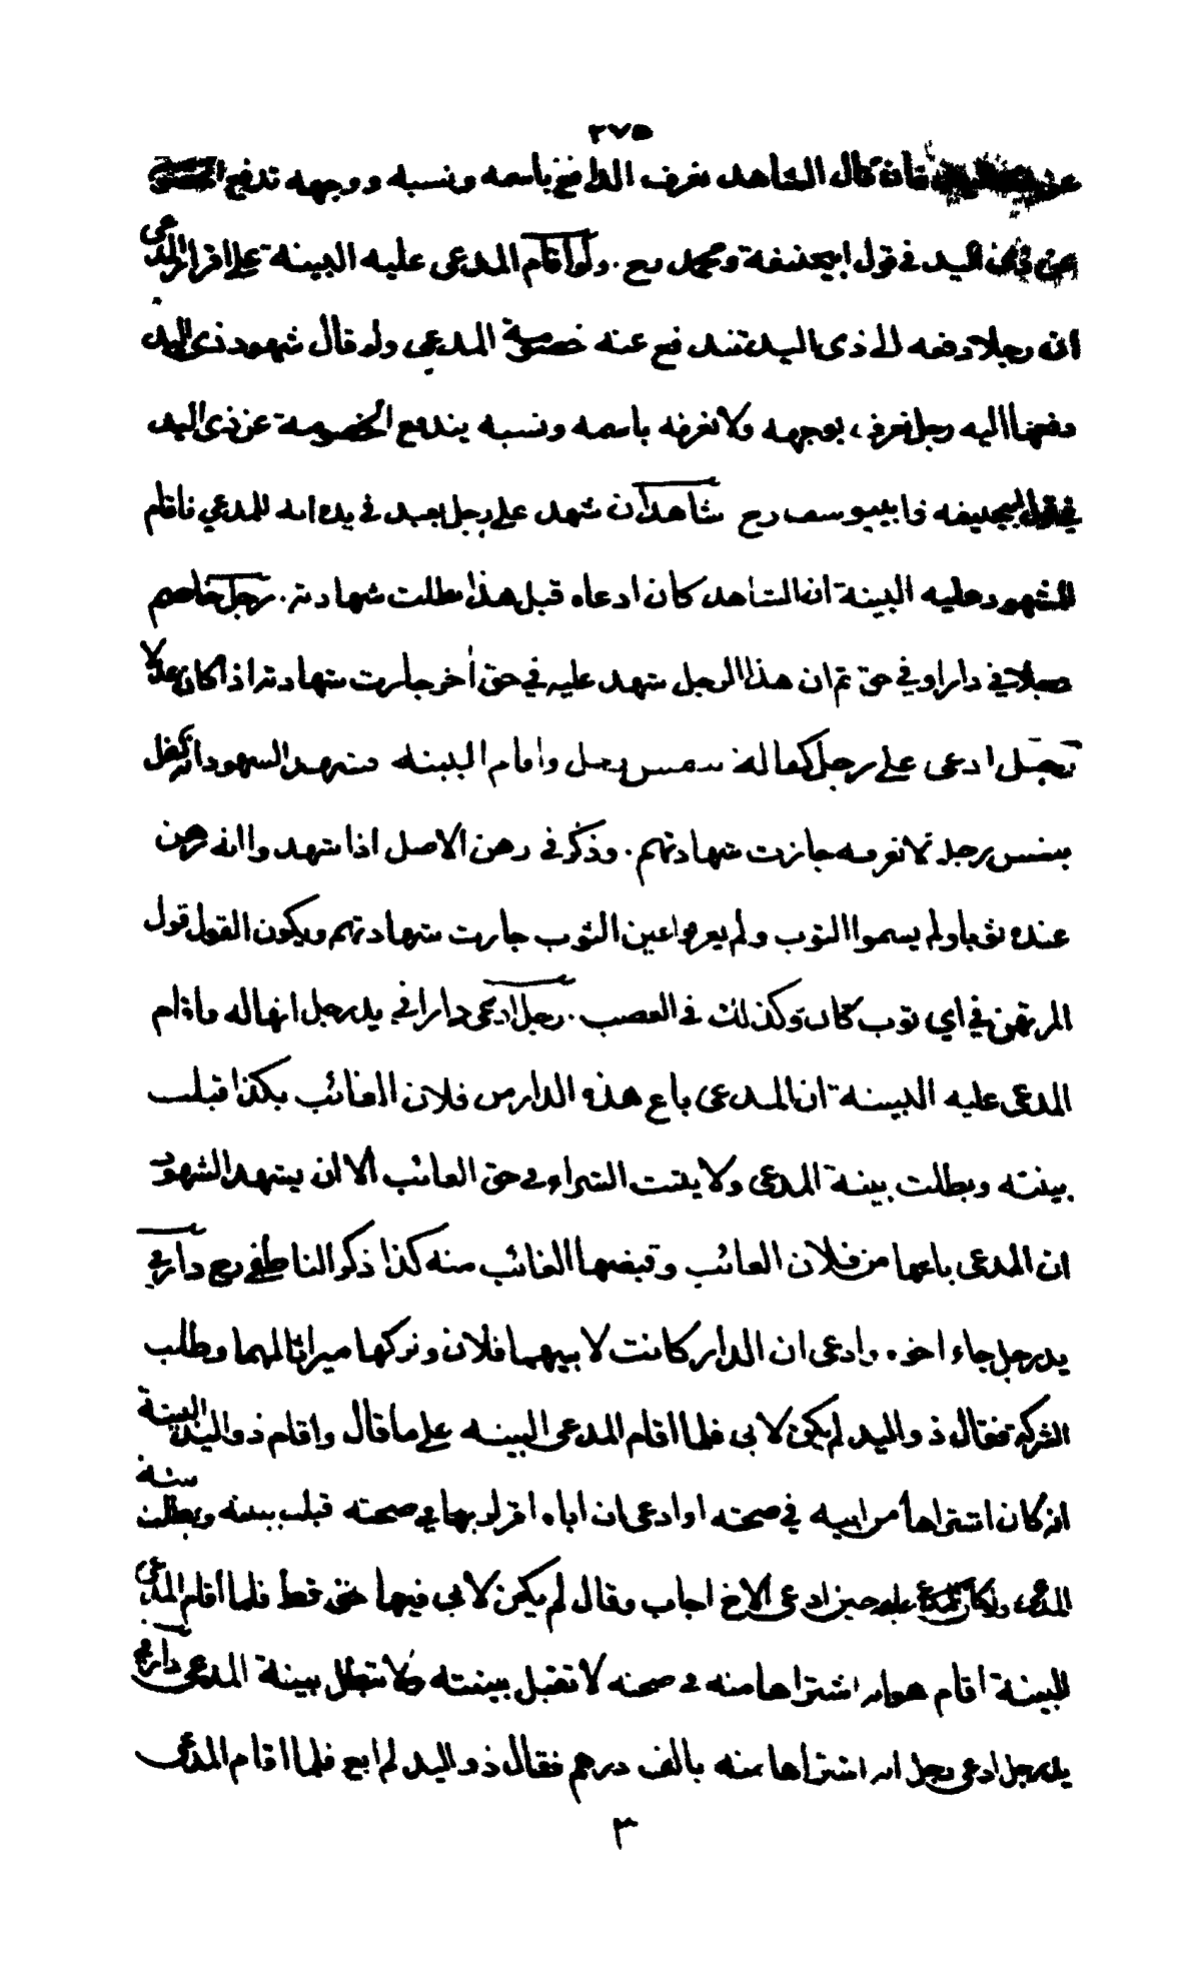 ٢٧٥
فان قال الشاهد نعرف الدافع باسمه ونسبه ووجهه تدفع
اليد في قول ابيحنيفة ومحمد رح . ولو اقام المدعى عليه البينة على اقرار المدعى
ان رجلا دفعه الى ذى اليد تندفع عنه خصومة المدعى ولو قال شهود ذى اليد
دفعها اليه رجل نعرفه بوجهه ولا نعرفه باسمه ونسبه يندفع الخصومة عن ذى اليد
في قول ابيحنيفه وابييوسف رح شاهدان شهد على رجل بعبد في يده انه للمدعي فاقام
المشهود عليه البينة ان الشاهد كان ادعاه قبل هذا بطلت شهادته . رجل خاصم
رجلا في دار او في حق ثم ان هذا الرجل شهد عليه في حق أخر جازت شهادته اذا كان عدلا
رجل ادعى على رجل كفالة بنفس رجل واقام البينه فشهد الشهود انه كفل
بنفس رجل لا نعرفه جازت شهادتهم . وذكر في رهن الاصل اذا شهدوا انه رهن
عنده ثوبا ولم يسموا الثوب ولم يعرفوا عين الثوب جازت شهادتهم ويكون القول قول
المرتهن في اي ثوب كان وكذلك في الغصب . رجل ادعى دارا في يد رجل انها له واقام
المدعى عليه البينة ان المدعى باع هذه الدار من فلان الغائب بكذا قبلت
بينته وبطلت بينة المدعى ولا يثبت الشراء في حق الغائب الا ان يشهد الشهود
ان المدعى باعها من فلان الغائب وقبضها الغائب منه كذا ذكر الناطفي رح دار في
يد رجل جاء اخوه وادعى ان الدار كانت لابيهما فلان وتركها ميراثا لهما وطلب
الشركة فقال ذو اليد لم يكن لابى فلما اقام المدعى البينه على ما قال واقام ذو اليد البينة
انه كان اشتراها من ابيه في صحته او ادعى ان اباه اقر له بها في صحته قبلت بينته وبطلت بينة
المدعى ولو كان المدعى عليه حين ادعى الاخ اجاب وقال لم يكن لابى فيها حق قط فلما اقام المدعى
البينة اقام هو انه اشتراها منه في صحته لا تقبل بينته ولا تبطل بينة المدعى دار في
يد رجل ادعى رجل انه اشتراها منه بالف درهم فقال ذو اليد لم ابع فلما اقام المدعى
٣